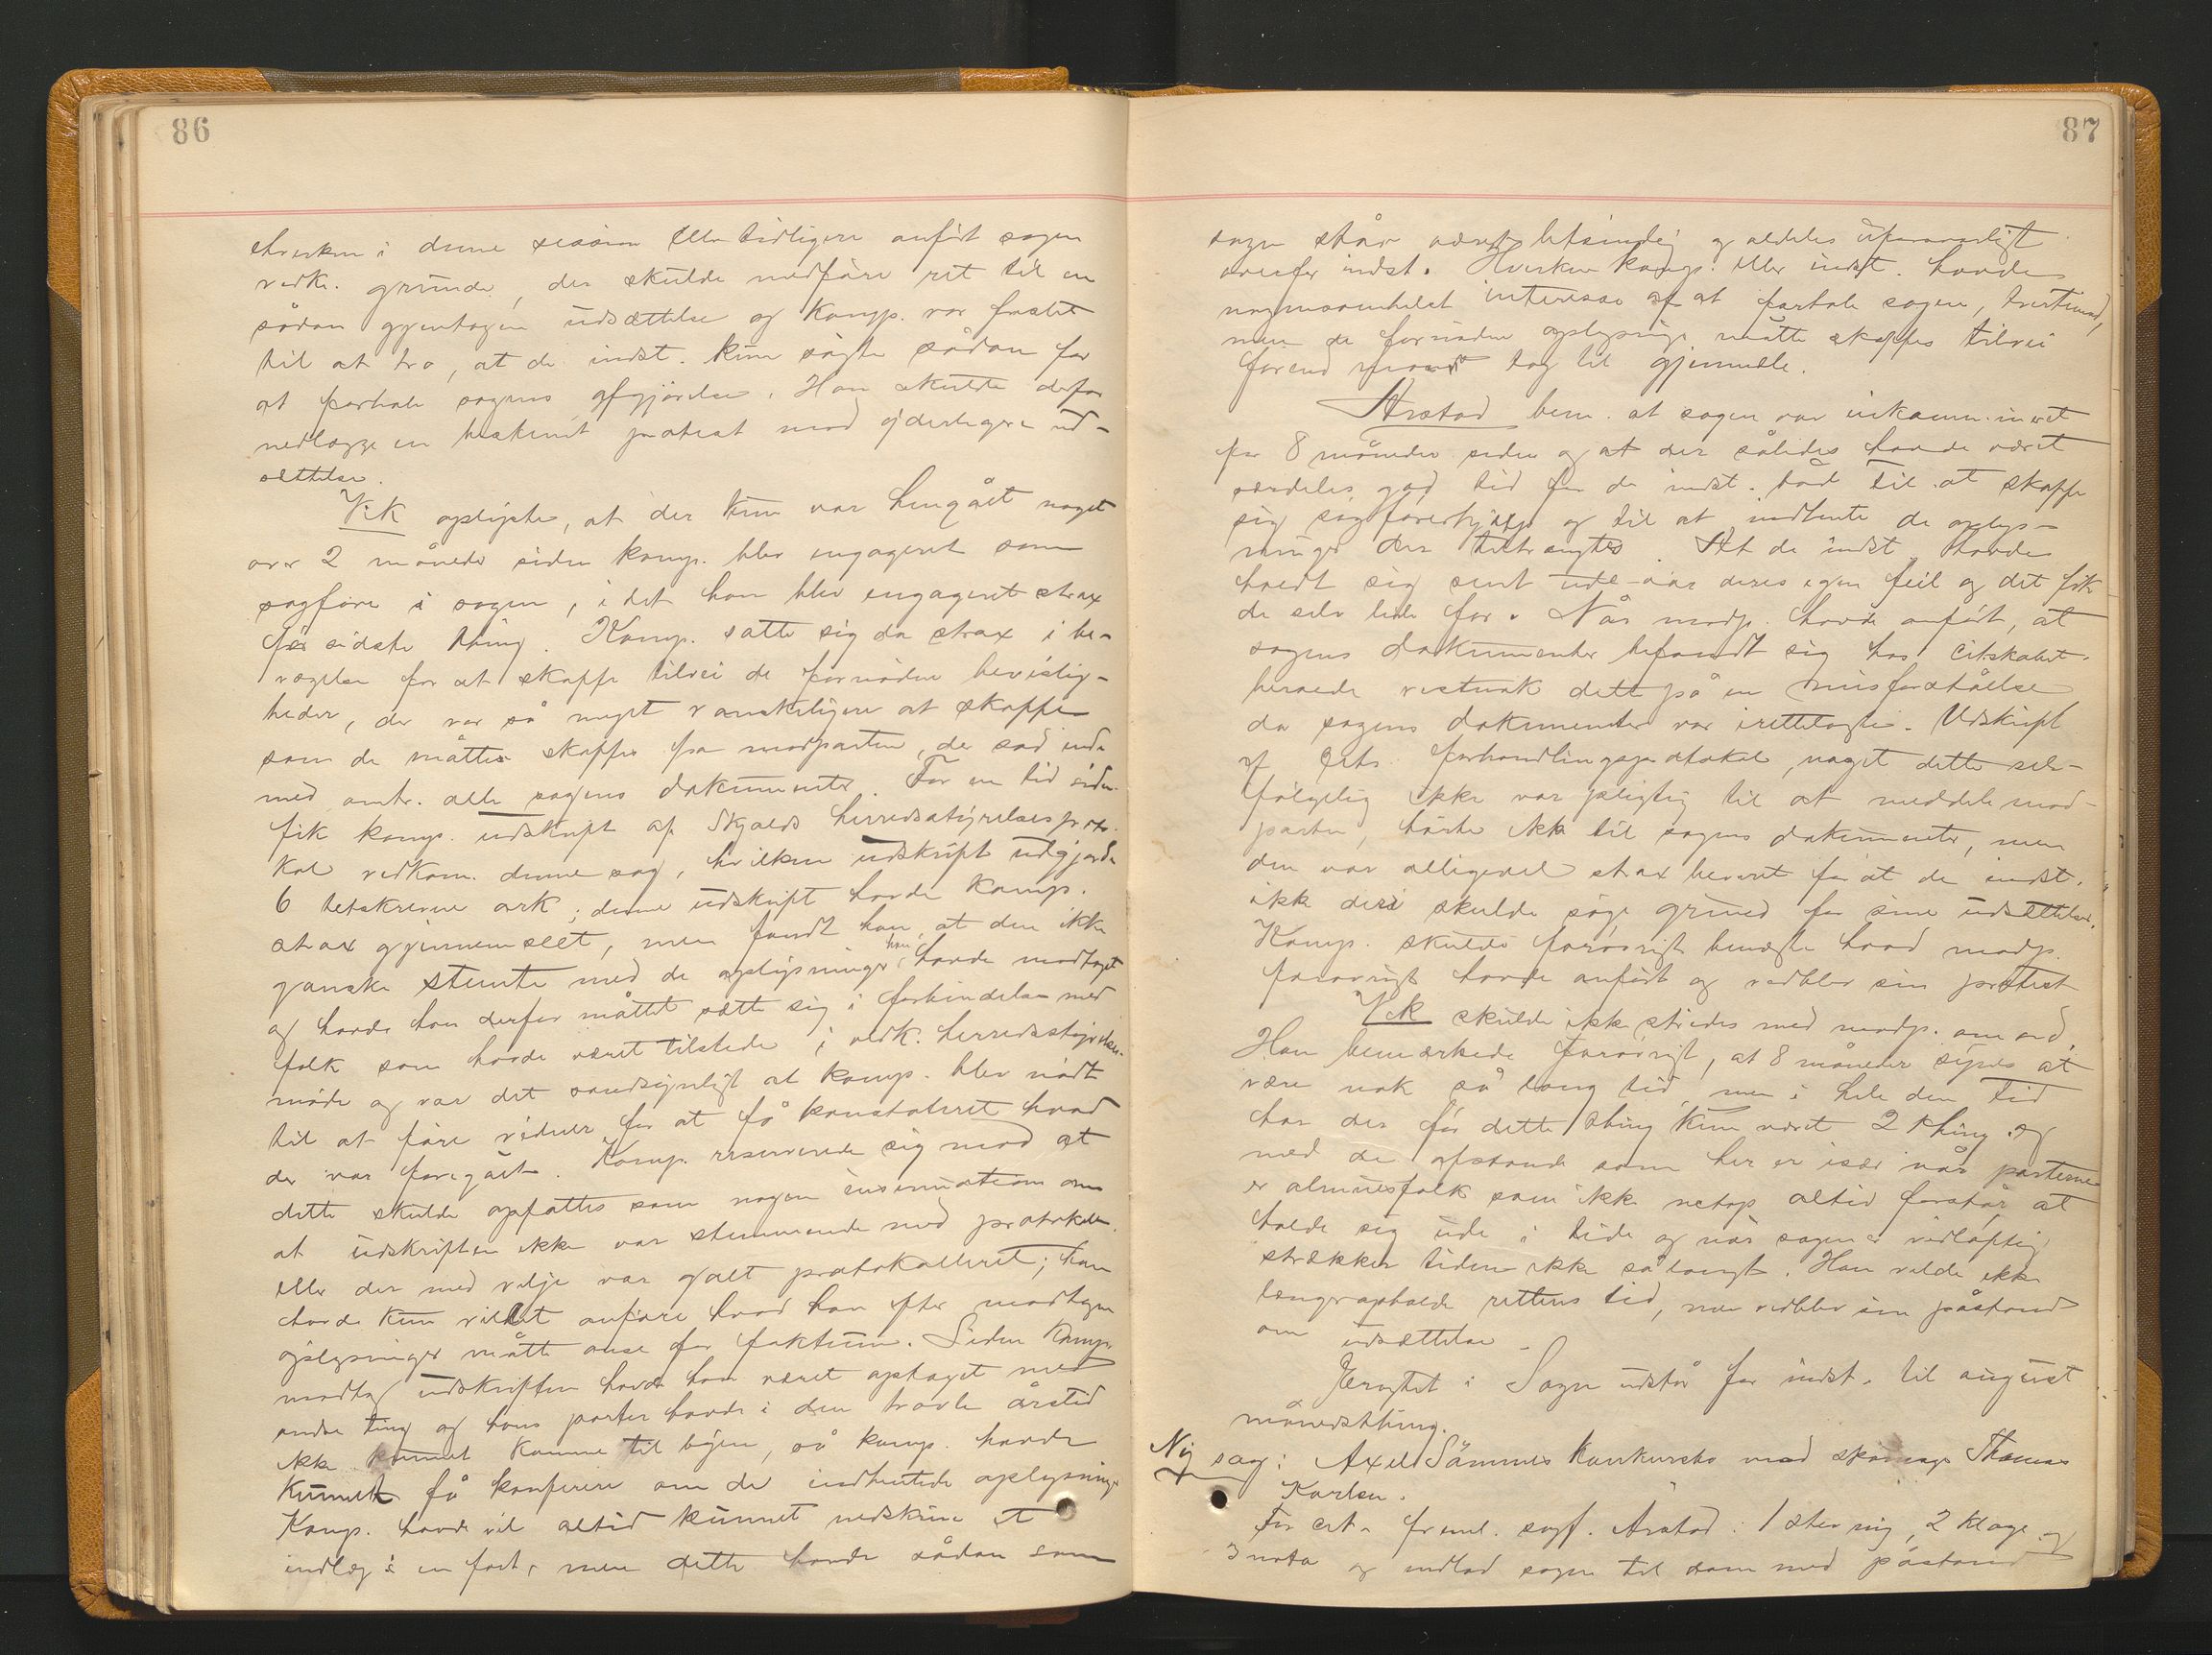 86
hverken i denne session eller tidligere anført sagen
vedk. grunde, der skulde medføre ret til en
sådan gjentagen udsættelse og komp. var fristet
til at tro, at de indst. kun søgte sådan for
at forhale sagens afgjørelse. Han skulde derfor
nedlægge en bestemt protest mod yderligere ud-
sættelse.
Vik oplyste, at der kun var hengået noget
over 2 måneder siden komp. blev engageret som
sagfører i sagen, i det han blev engageret strax
før sidste thing. Komp. satte sig da strax i be-
vægelse for at skaffe tilvei de fornødne bevislig-
heder, der var så meget vanskeligere at skaffe
som de måtte skaffes fra modparten, der sad inde
med omtr. alle sagens dokumenter. For en tid siden
fik komp. udskrift af Skjolds herredsstyrelses proto-
kol vedkom. denne sag, hvilken udskrift udgjorde
6 tetskrevne ark; denne udskrift havde komp.
strax gjennemseet, men fandt han, at den ikke
ganske stemte med de oplysninger han havde modtaget
og havde han derfor måttet sætte sig i forbindelse med
folk som havde været tilstede i vedk. herredsstyrelses-
møde og var det sandsynligt at komp. blev nødt
til at føre vidner for at få konstateret hvad
der var foregået. Komp. reserverede sig mod at
dette skulde opfattes som nogen insinuation om
at udskriften ikke var stemmende med protokollen
eller der med vilje var galt protokolleret; han
havde kun villet anføre hvad han efter modtagne
oplysninger måtte anse for faktum. Siden komp.
modtog udskriften havde han været optaget med
andre ting og hans parter havde i den travle årstid
ikke kunnet komme til byen, så komp. havde
kunnet få konferere om de indhentede oplysninger
Komp. havde vel altid kunnet nedskrive et
indlæg i en fart, men dette havde sådan som
87
sagen står været letsindig og aldeles uforsvarligt
overfor indst. Hverken komp. eller indst. havde
nogensomhelst interesse af at forhale sagen, tvertimod,
men de fornødne oplysninger måtte skaffes tilvei
forend man tog til gjenmæle.
Årstad bem. at sagen var inkammineret
for 8 måneder siden og at der således havde været
særdeles god tid for de indst. både til at skaffe
sig sagførerhjælp og til at indhente de oplys-
ninger der tiltrængtes. At de indst. havde
holdt sig sent ude var deres egen feil og det fik
de selv lide for. Når modp. havde anført, at
sagens dokumenter befandt sig hos Citskabet
beroede vistnok dette på en misforståelse
da sagens dokumenter var irettelagte. Udskrift
af Cits. forhandlingsprotokol, noget dette selv-
følgelig ikke var pligtig til at meddele mod-
parten, hørte ikke til sagens dokumenter, men
den var alligevel strax leveret for at de indst.
ikke deri skulde søge grund for sine udsættelser.
Komp. skulde forøvrigt benægte hvad modp.
forøvrigt havde anført og vedblev sin protest
Vik skulde ikke strides med modp. om ord.
Han bemærkede forøvrigt, at 8 måneder synes at
være nok så lang tid, men i hele den tid
har der før dette thing kun været 2 thing og
med de afstande som her er især når parterne
er almuesfolk som ikke netop altid forstår at
holde sig ude i tide og når sagen er vidløftig
strækker tiden ikke så langt. Han vilde ikke
længer opholde rettens tid, men vedblev sin påstand
om udsættelse
Eragtet: Sagen udstår for indst. til august
månedsthing.
Ny sag: Axel Sømmes konkursbo mod skomager Thomas
Karlsen.
For cit. freml. sagf. Årstad: 1 stævning, 2 klage og
3 nota og indlod sagen til dom med påstand